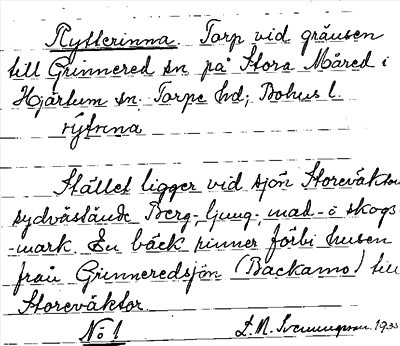 Rytterinna. Torp vid gränsen
till Grinnered sn på Stora Måred i
Hjärtum sn. Torpe hd; Bohus l.
rýtrena
Stället ligger vid sjön Storeväktor
sydvästände Berg- ljung- mad- o skogs-
-mark. En bäck rinner förbi husen
från Grinneredsjön (Backamo) till
Storeväktor
No 1
D. M. 193